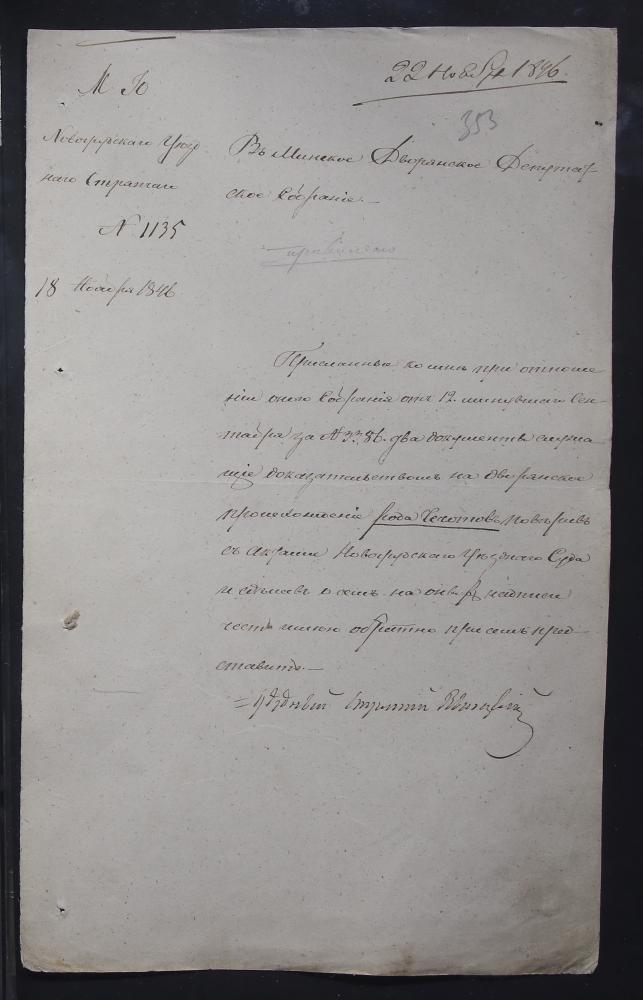 22 Ноября 1846.
353
М Ю
Новогрудскаго Уѣзд
наго Стряпчаго
№ 1135
18 Ноября 1846
Въ Минское Дворянское Депутат
ское Собраніе.
Присланные ко мнѣ при отноше
ніи онаго Собранія отъ 12. минувшаго Сен
тября за № 3386. два документы служа
щіе доказательствомъ на дворянское
происхожденіе рода повѣривъ
съ актами Новогрудскаго Уѣзднаго Суда
и сдѣлавъ о семъ на оныхъ надписи
честь имѣю обратно при семъ пред
ставить.
Уѣздный Стряпчій